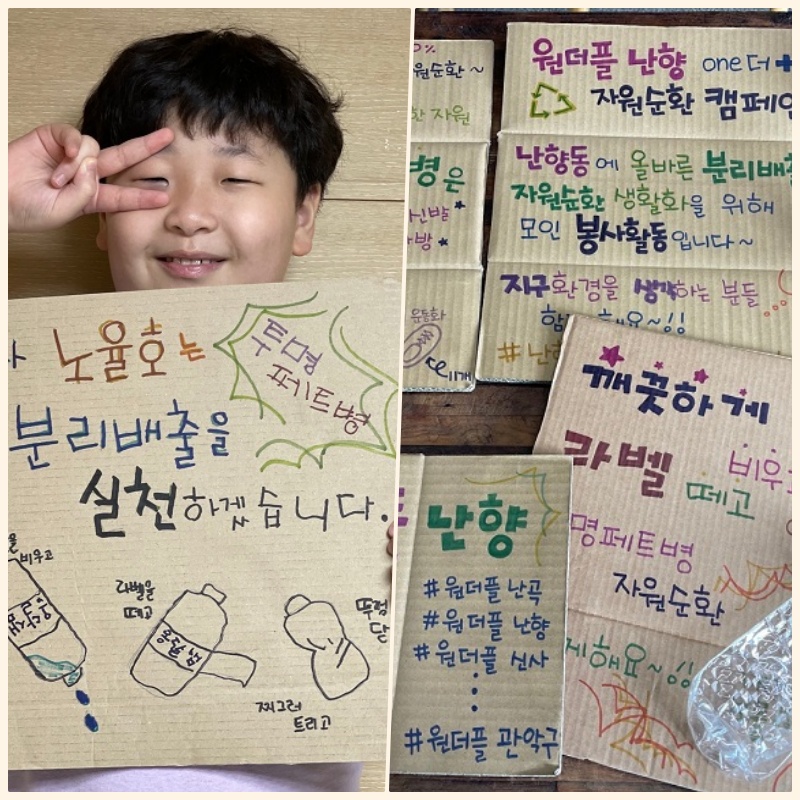 노율호는
투명
페트병
분리배출을
실천하겠습니다.
비우고
라벨을
떼고
찌그러
트리고
0%
원순환 ~
한 자원
병은
신발
가방
운동화
1개
원더플 난향 one더 +
자원순환 캠페인
난향동에 올바른 분리배출
자원순환 생활화을 위해
모인 봉사활동입니다~
지구환경을 생각하는 분들
함께해요~!!
#난향
깨끗하게
라벨 떼고 비우고
명페트병
자원순환
께해요~!!
난향
#원더플 난곡
#원더플 난향
#원더플 신사
#원더플 관악구